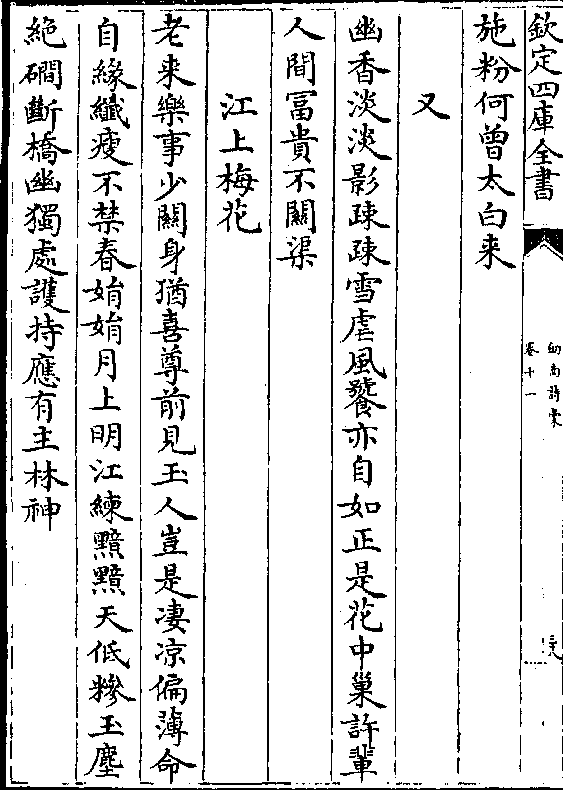 欽定四庫全書
劒南詩稾
卷十一
施粉何曾太白来
又
幽香淡淡影疎疎雪虐風饕亦自如正是花中巢許輩
人間冨貴不關渠
江上梅花
老来樂事少關身猶喜尊前見玉人豈是凄凉偏薄命
自緣纖瘦不禁春娟娟月上明江練黯黯天低糝玉塵
絶磵斷橋幽獨處護持應有主林神